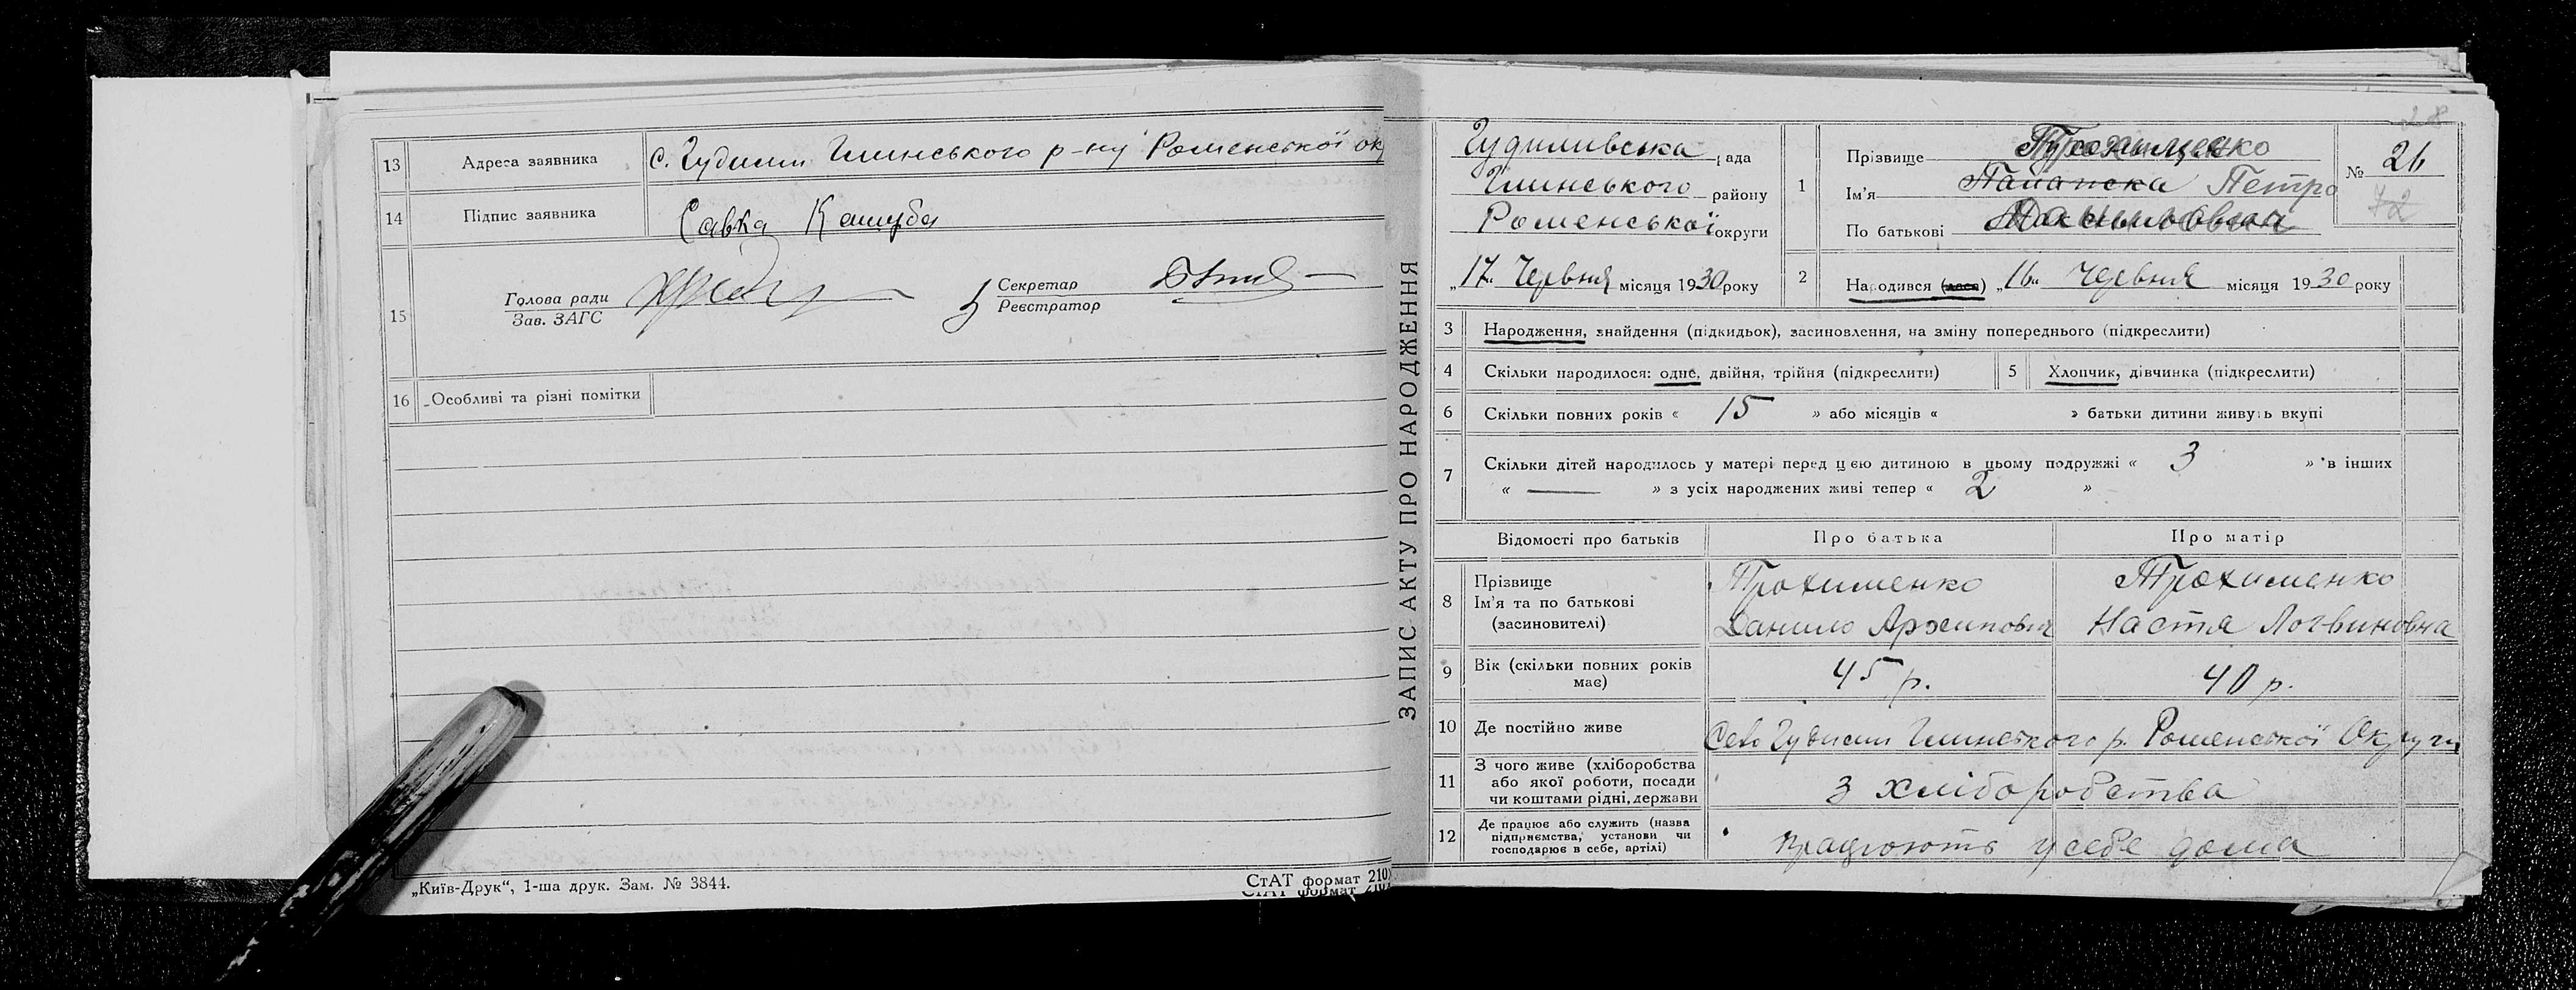 13 Адреса заявника с. Гудими Глинського р-ну Роменської ок
14 Підпис заявника Савка Кашуба
15 Голова ради
Зав. ЗАГС
Секретар
Реєстратор
16 Особливі та різні помітки
„Київ-Друк“, 1-ша друк. Зам. № 3844.
СтАТ формат 210
СтАТ формат 210
ЗАПИС АКТУ ПРО НАРОДЖЕННЯ
28
Гудимивська рада
Глинського району
Роменської округи
„17“ Червня місяця 1930 року
1 Прізвище Трохименко
Ім'я Петро
По батькові Данилович
№ 26
72
2 Народився (лася) „16“ Червня місяця 1930 року
3 Народження, знайдення (підкидьок), засиновлення, на зміну попереднього (підкреслити)
4 Скільки народилося: одне, двійня, трійня (підкреслити) 5 Хлопчик, дівчинка (підкреслити)
6 Скільки повних років « 15 » або місяців « » батьки дитини живуть вкупі
7 Скільки дітей народилось у матері перед цією дитиною в цьому подружжі « 3 » в інших
« — » з усіх народжених живі тепер « 2 »
Відомості про батьків Про батька Про матір
8 Прізвище
Ім'я та по батькові
(засиновителі)
Трохименко
Данило Архипович
Трохименко
Настя Логвиновна
9 Вік (скільки повних років має) 45 р. 40 р.
10 Де постійно живе Село Гудими Глинського р. Роменської Округи
11 З чого живе (хліборобства
або якої роботи, посади
чи коштами рідні, держави
з хліборобства
12 Де працює або служить (назва
підприємства, установи чи
господарює в себе, артілі)
працюють у себе дома